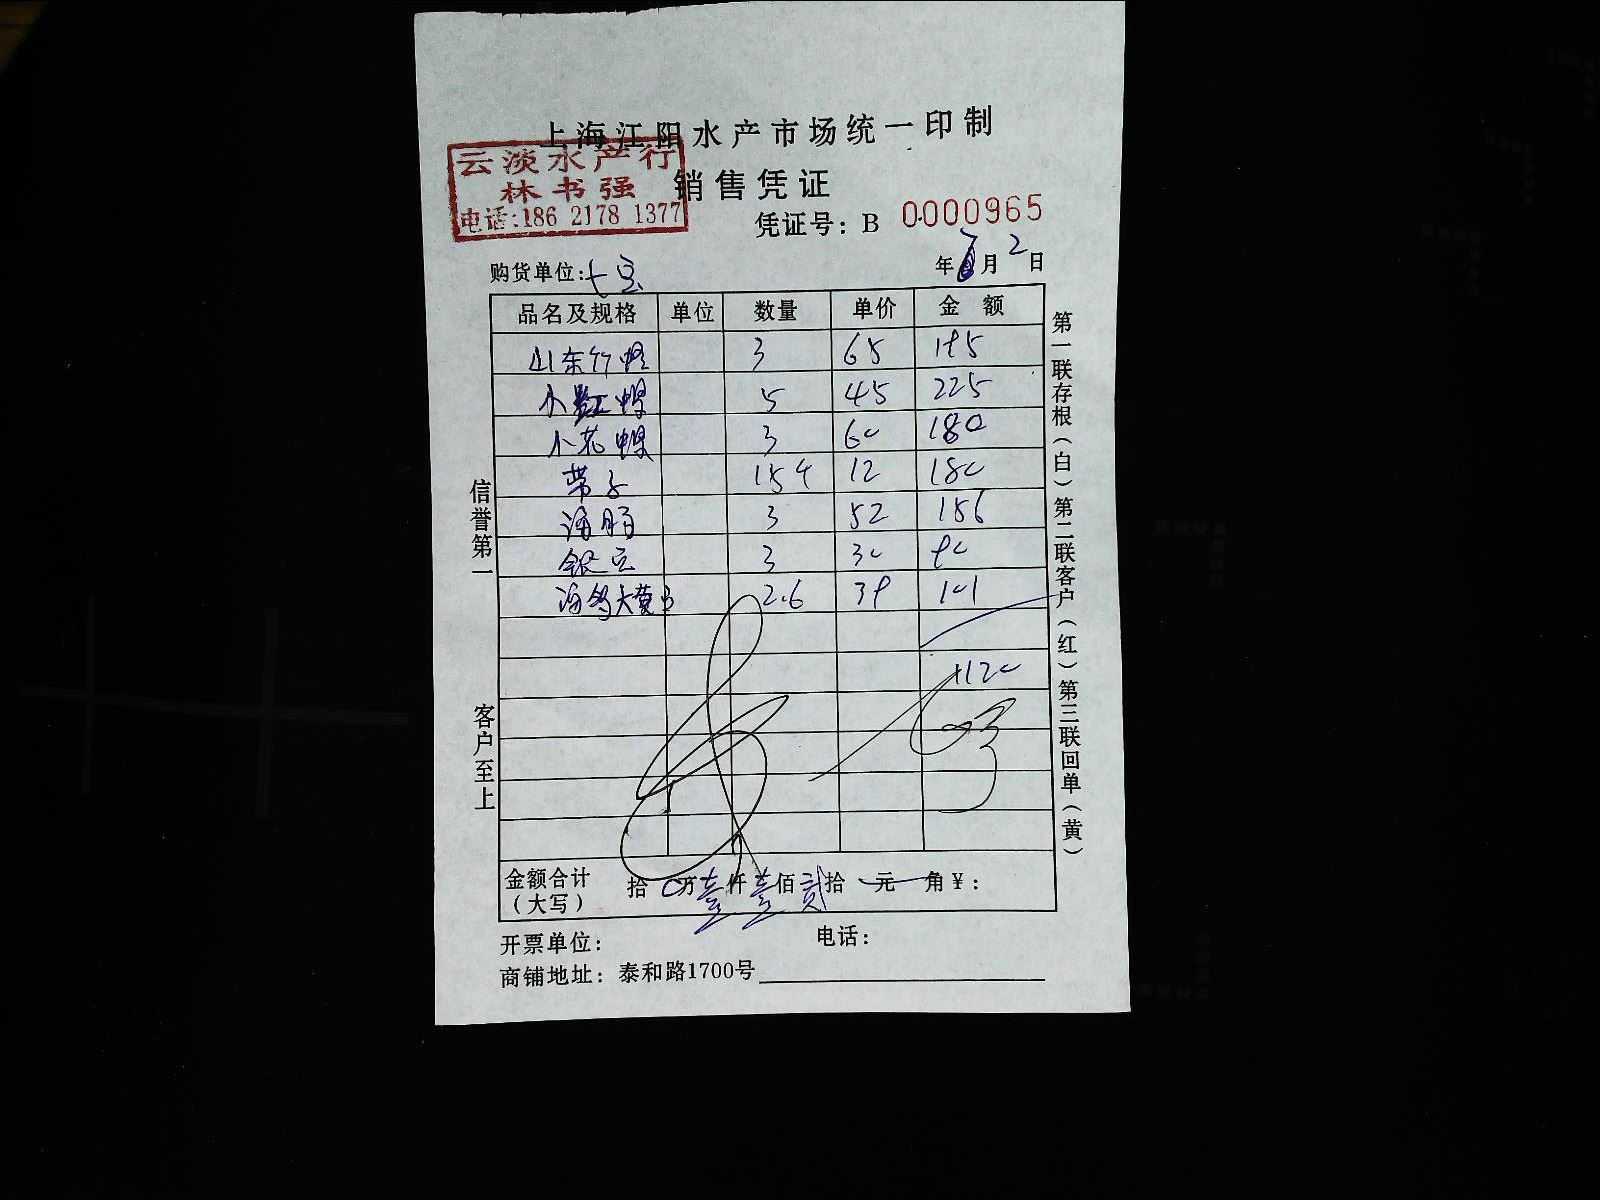 上海江阳水产市场统一印制
云淡水产行
林书强
电话:186 2178 1377
销售凭证
凭证号: B 0000965
购货单位:七宝 年 月 2 日
品名及规格 单位 数量 单价 金额
山东竹蛏 3 65 195
小红蚬 5 45 225
小花螺 3 60 180
带子 15个 12 180
海肠 3 52 156
银豆 3 30 90
2.6 39 101
1120
金额合计(大写) 拾 万壹仟壹佰贰拾 元 角¥:
开票单位: 电话:
商铺地址: 泰和路1700号
信誉第一 客户至上
第一联存根(白)第二联客户(红)第三联回单(黄)